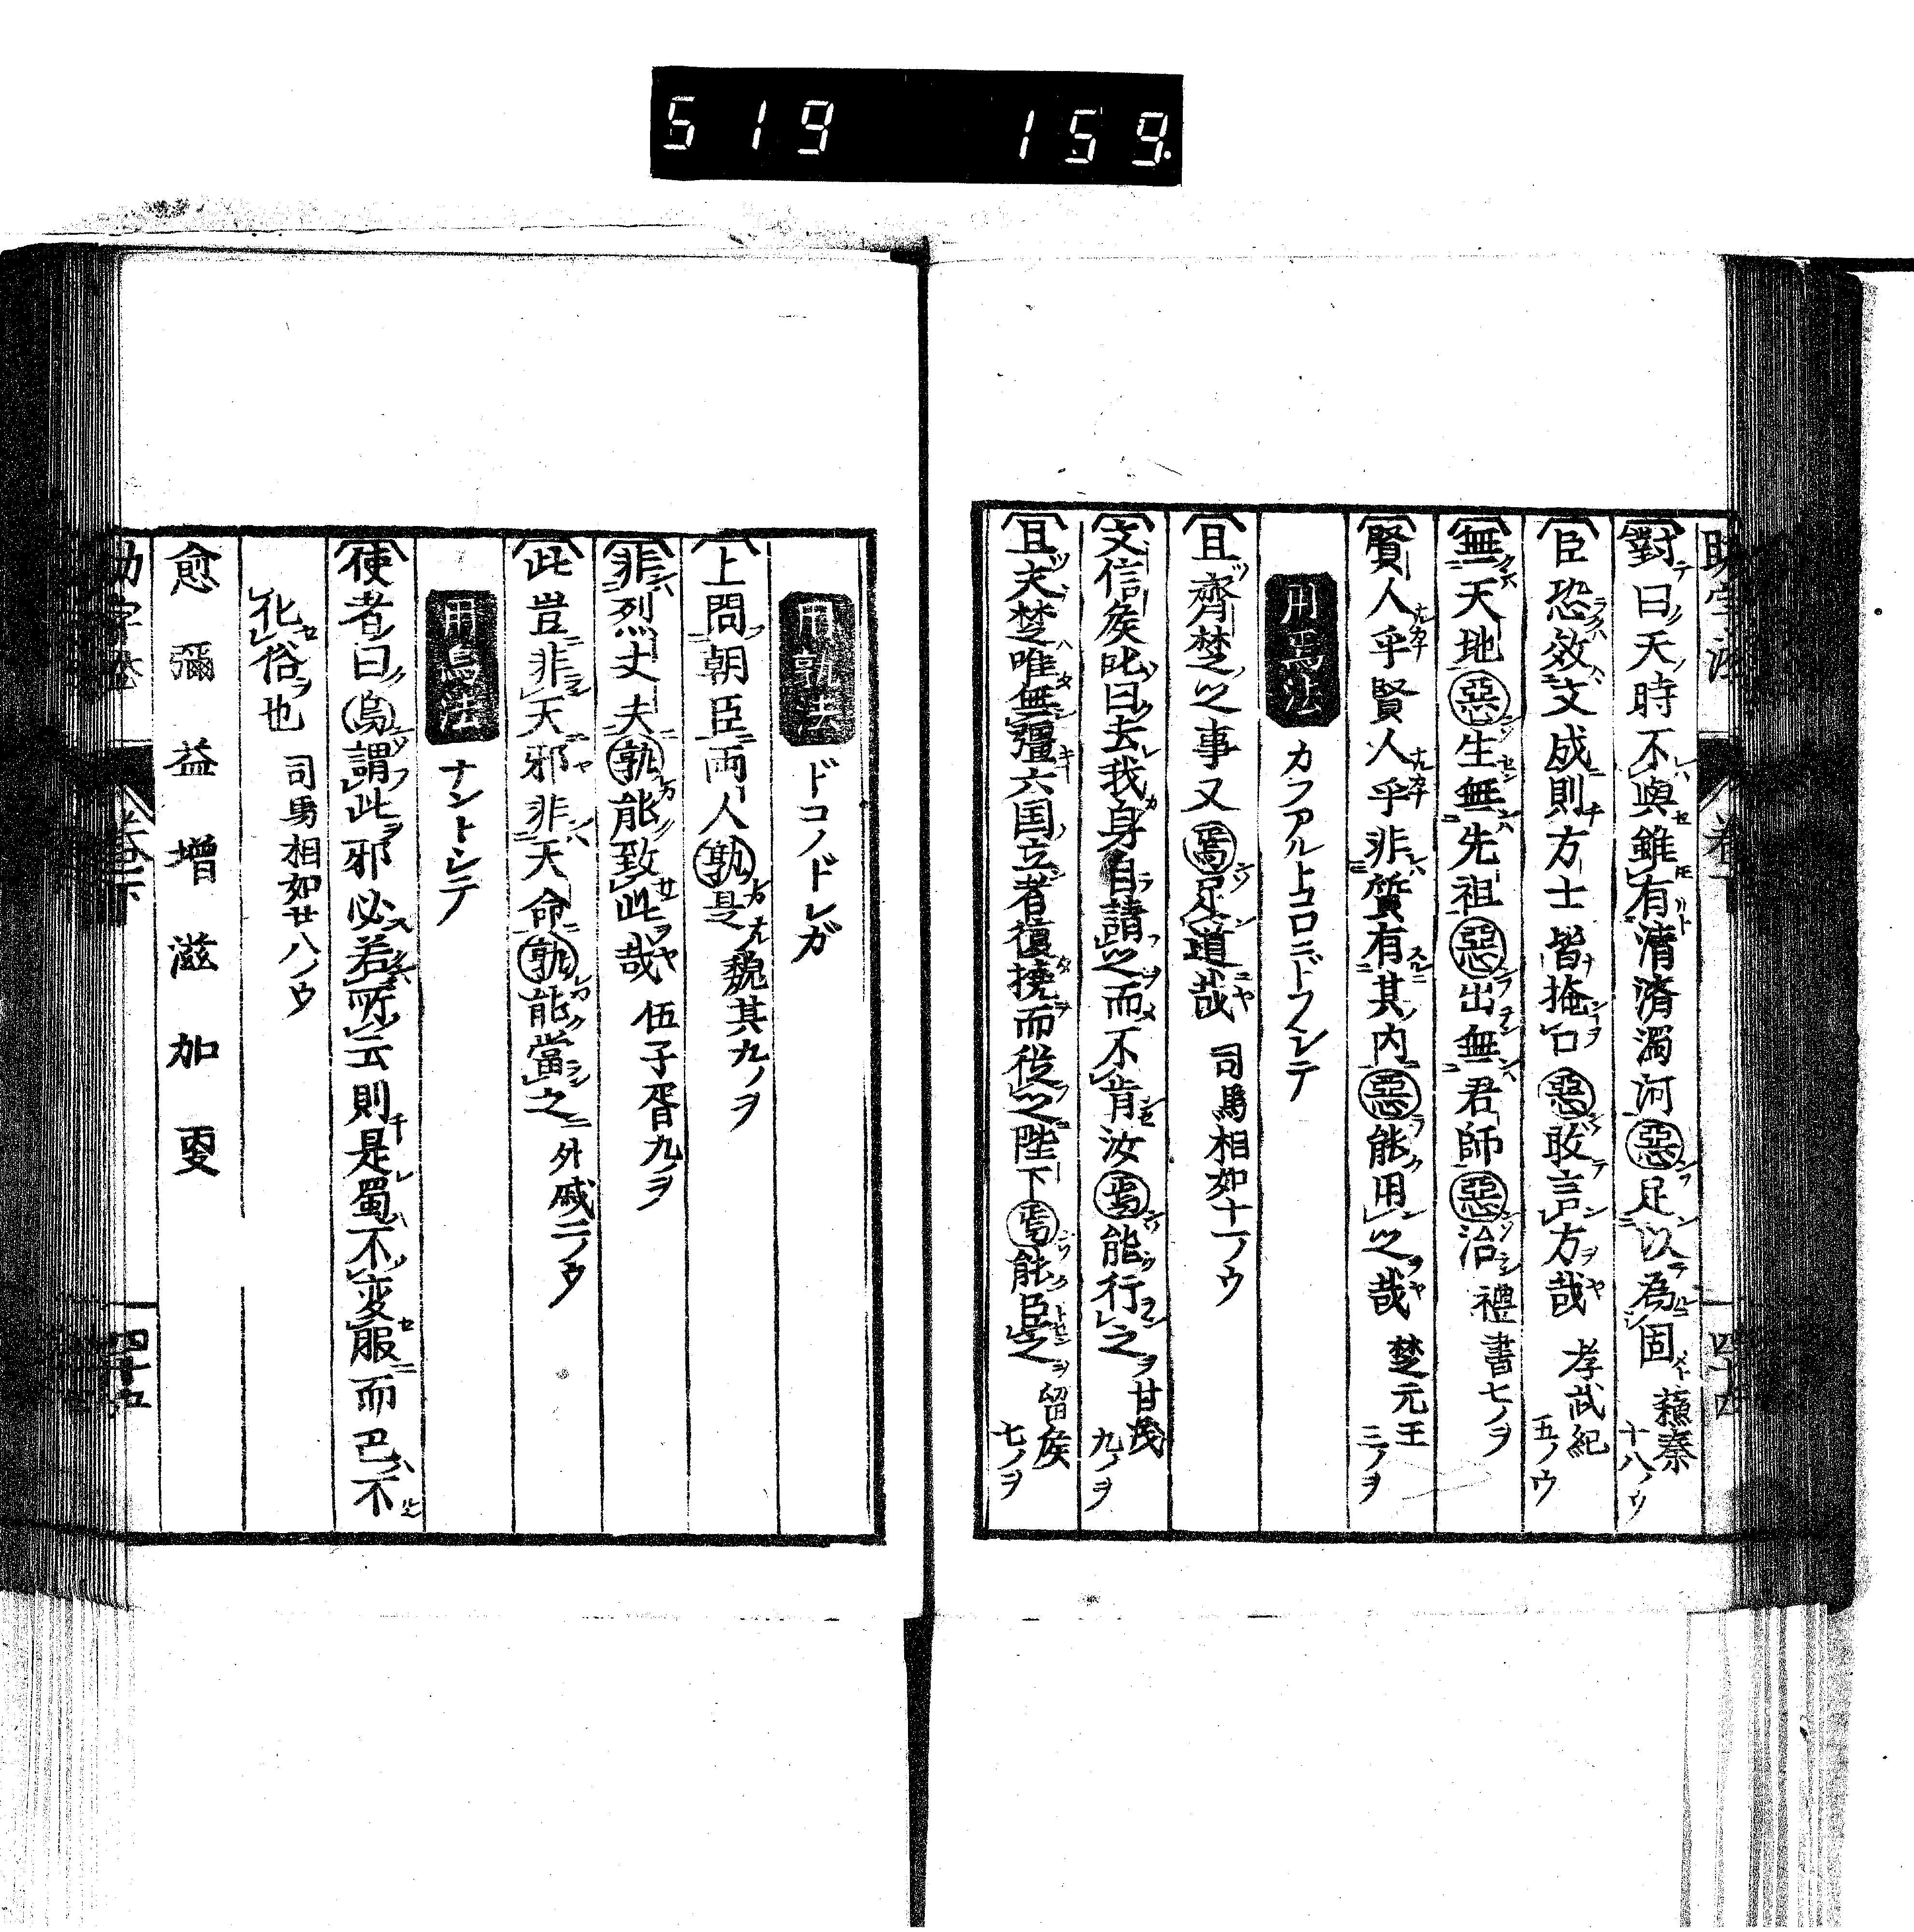 519 159
對曰天時不與雖有清濟濁河惡足以為固 蘓秦十八ノウ
臣恐效文成則方士皆掩口惡敢言方哉 孝武紀五ノウ
無天地惡生無先祖惡出無君師惡治 禮書七ノヲ
賢人乎賢人乎非質有其内惡能用之哉 楚元王三ノヲ
用焉法 カフアルトコロニドフシテ
且齊楚之事又焉足道哉 司馬相如十一ノウ
文信矦叱曰去我身自請之而不肯汝焉能行之 甘茂九ノヲ
且夫楚唯無彊六国立者復撓而從之陛下焉能臣之 留矦七ノヲ
用孰法 ドコノドレガ
上問朝臣両人孰是 魏其九ノヲ
非烈丈夫孰能致此哉 伍子胥九ノヲ
此豈非天邪非天命孰能當之 外戚二ノウ
用烏法 ナントシテ
使者曰烏謂此邪必若所云則是蜀不変服而巴不
化俗也 司馬相如廿八ノウ
愈 彌 益 增 滋 加 更
卷下
四十五